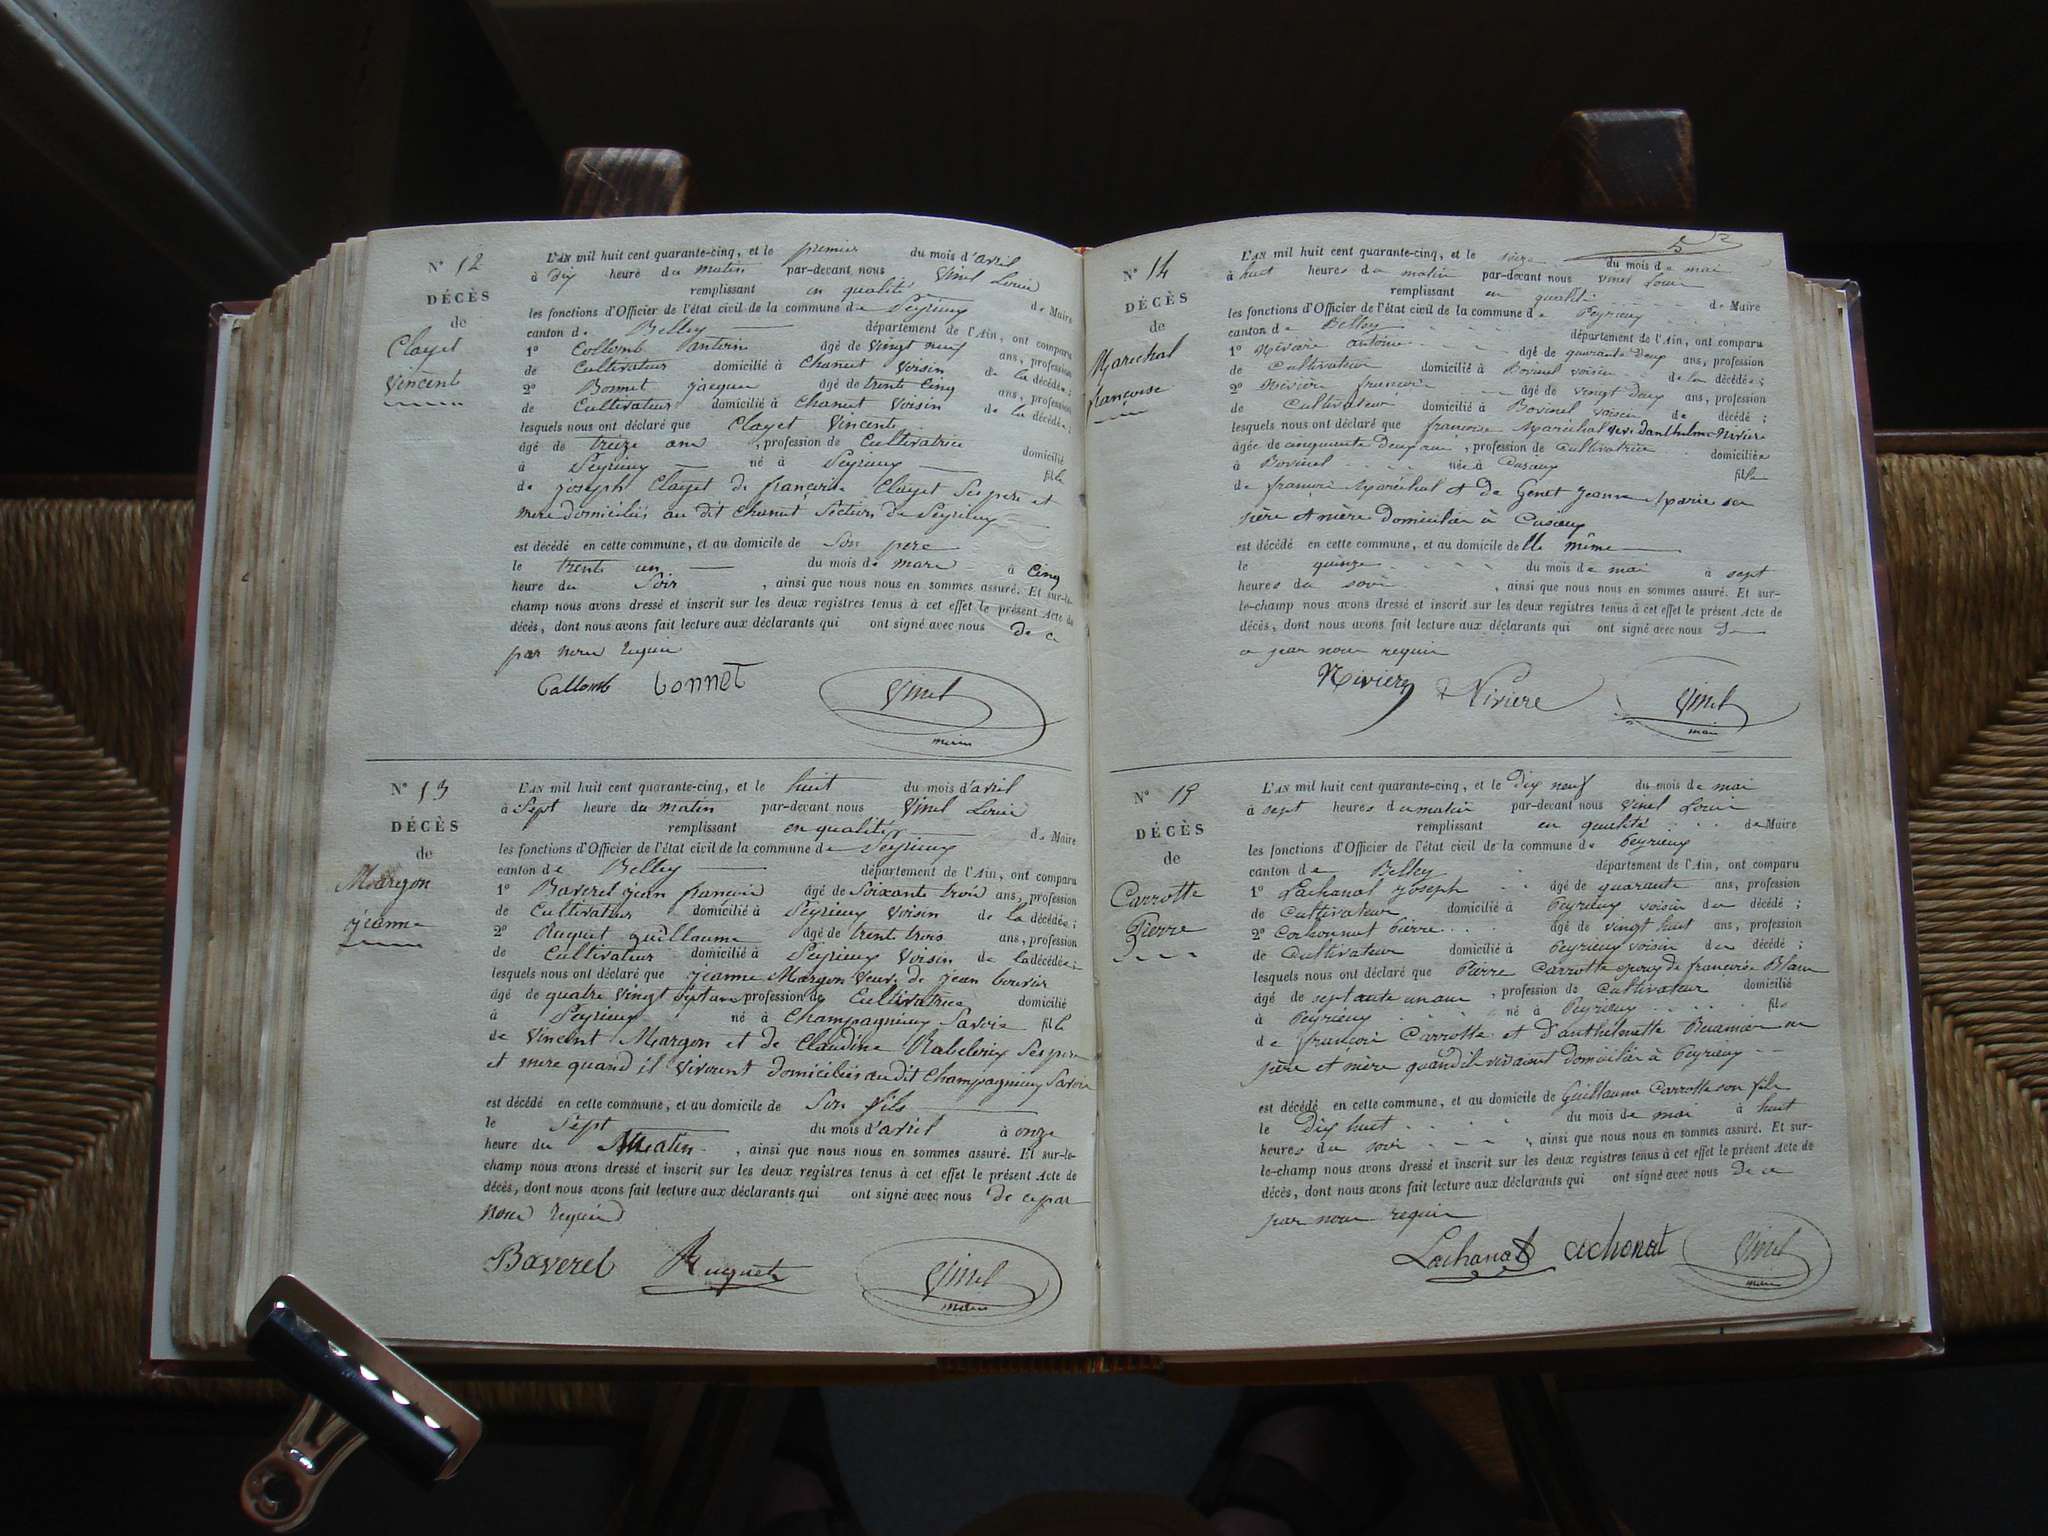 N° 12
DÉCÈS
de
Clayet
Vincent
L'AN mil huit cent quarante-cinq, et le premier du mois d'avril
à dix heure du matin par-devant nous Vinel Louis
remplissant en qualité de Maire
les fonctions d'Officier de l'état civil de la commune de Peyrieux
canton de Belley département de l'Ain, ont comparu
1° Collomb antoine âgé de vingt neuf ans, profession
de Cultivateur domicilié à Chanut Voisin de la décédée;
2° Bonnet jacques âgé de trente Cinq ans, profession
de Cultivateur domicilié à Chanut Voisin de la décédée;
lesquels nous ont déclaré que Clayet Vincent
âgé de treize ans, profession de Cultivatrice domicilié
à Peyrieux né à Peyrieux fille
de joseph Clayet de françoise Clayet Ses pere et
mere domiciliés au dit Chanut Section de Peyrieux
est décédé en cette commune, et au domicile de Son pere
le trente un du mois de mars à Cinq
heure du Soir, ainsi que nous nous en sommes assuré. Et sur-le-
champ nous avons dressé et inscrit sur les deux registres tenus à cet effet le présent Acte de
décès, dont nous avons fait lecture aux déclarants qui ont signé avec nous de ce
par nous requis
Collomb bonnet Vinel
maire
N° 13
DÉCÈS
de
Margon
jeanne
L'AN mil huit cent quarante-cinq, et le huit du mois d'avril
à Sept heure du matin par-devant nous Vinel Louis
remplissant en qualité de Maire
les fonctions d'Officier de l'état civil de la commune de Peyrieux
canton de Belley département de l'Ain, ont comparu
1° Baverel jean françois âgé de Soixante trois ans, profession
de Cultivateur domicilié à Peyrieux Voisin de la décédée;
2° Ruquet guillaume âgé de trente trois ans, profession
de Cultivateur domicilié à Peyrieux Voisin de la décédée;
lesquels nous ont déclaré que jeanne Margon Veuve de jean bouvier
âgé de quatre Vingt Sept ans profession de Cultivatrice domicilié
à Peyrieux né à Champagnieux Savoie fille
de Vincent Margon et de Claudine Ses pere
et mere quand il Vivoient domiciliés au dit Champagnieux Savoie
est décédé en cette commune, et au domicile de Son fils
le Sept du mois d'avril à onze
heure du Matin, ainsi que nous nous en sommes assuré. Et sur-le-
champ nous avons dressé et inscrit sur les deux registres tenus à cet effet le présent Acte de
décès, dont nous avons fait lecture aux déclarants qui ont signé avec nous de ce par
nous requis
Baverel Ruquet Vinel
maire
5
N° 14
DÉCÈS
de
Marechal
françoise
L'AN mil huit cent quarante-cinq, et le seize du mois de mai
à huit heures du matin par-devant nous Vinel Louis
remplissant en qualité de Maire
les fonctions d'Officier de l'état civil de la commune de Peyrieux
canton de Belley département de l'Ain, ont comparu
1° Nivière antoine âgé de quarante deux ans, profession
de Cultivateur domicilié à Bovinel voisin de la décédée;
2° Nivière françois âgé de vingt deux ans, profession
de Cultivateur domicilié à Bovinel voisin de décédé;
lesquels nous ont déclaré que françoise Maréchal veuve d'anthelme Nivière
âgée de cinquante deux ans, profession de Cultivatrice domiciliée
à Bovinel née à Cuzieux fille
de françois Maréchal et de Genet Jeanne Marie sa
père et mère domiciliés à Cuzieux
est décédé en cette commune, et au domicile de lle même
le quinze du mois de mai à sept
heures du soir, ainsi que nous nous en sommes assuré. Et sur-
le-champ nous avons dressé et inscrit sur les deux registres tenus à cet effet le présent Acte de
décès, dont nous avons fait lecture aux déclarants qui ont signé avec nous de
ce par nous requis
Nivière Nivière Vinel
maire
N° 15
DÉCÈS
de
Carrotte
Pierre
L'AN mil huit cent quarante-cinq, et le dix neuf du mois de mai
à sept heures du matin par-devant nous Vinel Louis
remplissant en qualité de Maire
les fonctions d'Officier de l'état civil de la commune de Peyrieux
canton de Belley département de l'Ain, ont comparu
1° Lachanal Joseph âgé de quarante ans, profession
de Cultivateur domicilié à Peyrieux voisin du décédé;
2° Pierre âgé de vingt huit ans, profession
de Cultivateur domicilié à Peyrieux voisin du décédé;
lesquels nous ont déclaré que Pierre Carrotte epoux de françoise Blanc
âgé de septante un ans, profession de Cultivateur domicilié
à Peyrieux né à Peyrieux fils
de françois Carrotte et d'anthelmette ses
père et mère quand il vivaient domiciliés à Peyrieux
est décédé en cette commune, et au domicile de Guillaume Carrotte son fils
le dix huit du mois de mai à huit
heures du soir, ainsi que nous nous en sommes assuré. Et sur-
le-champ nous avons dressé et inscrit sur les deux registres tenus à cet effet le présent Acte de
décès, dont nous avons fait lecture aux déclarants qui ont signé avec nous de ce
par nous requis
Lachanal Vinel
maire